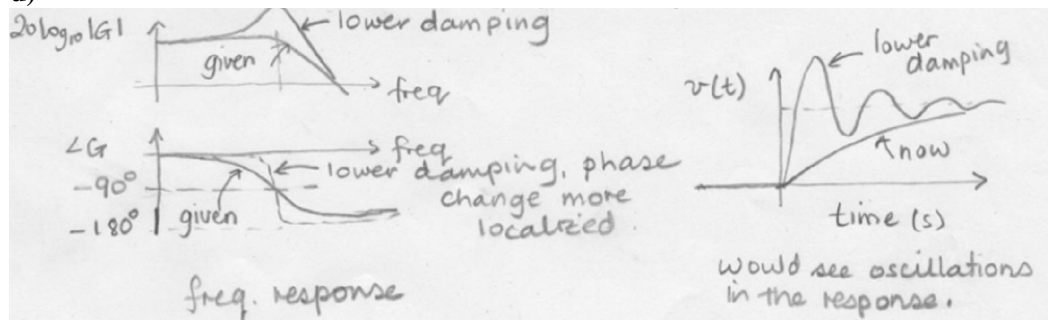 20log₁₀|G|
lower damping
given
freq
∠G
freq
-90°
lower damping, phase
change more
localized.
given
-180°
freq. response
v(t)
lower
damping
now
time (s)
would see oscillations
in the response.